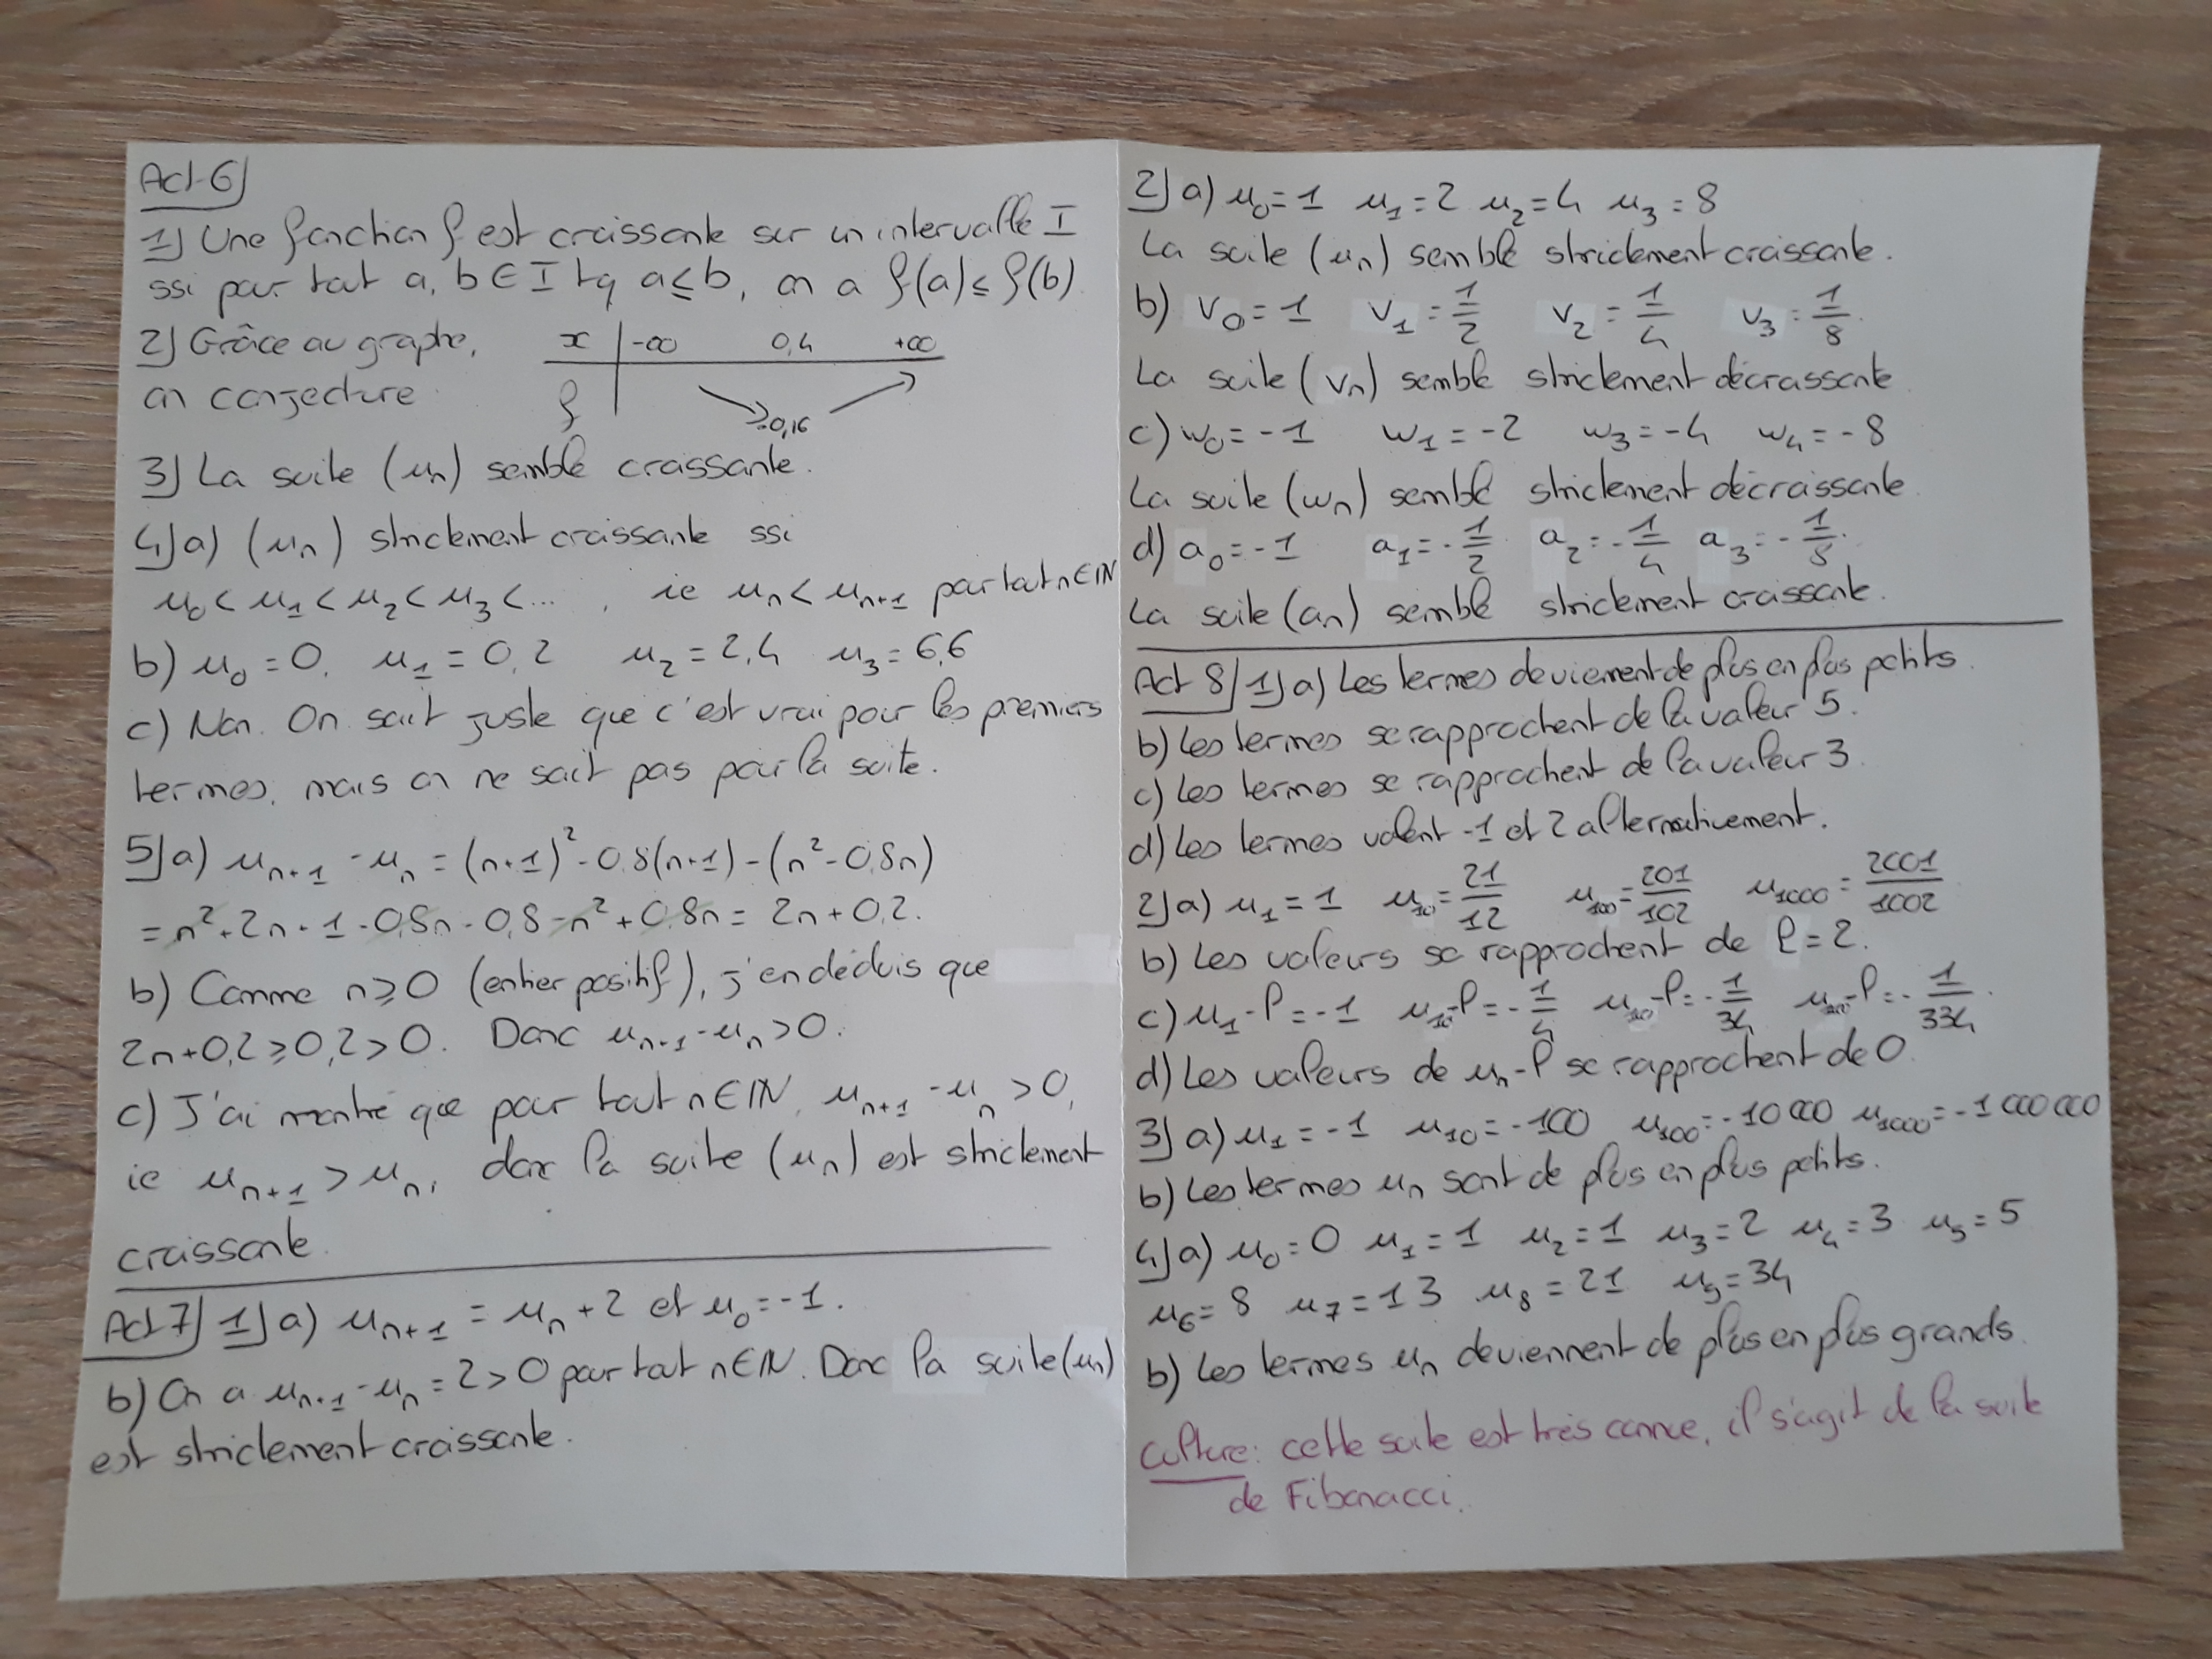 Act 6
1) Une fonction f est croissante sur un intervalle I
ssi pour tout a, b ∈ I tq a ≤ b, on a f(a) ≤ f(b)
2) Grâce au graphe,
on conjecture
x -∞ 0,4 +∞
f -0,16
3) La suite (un) semble croissante.
4) a) (un) strictement croissante ssi
u0 < u1 < u2 < u3 < ... , ie un < un+1 pour tout n ∈ IN
b) u0 = 0, u1 = 0,2 u2 = 2,4 u3 = 6,6
c) Non. On sait juste que c'est vrai pour les premiers
termes, mais on ne sait pas pour la suite.
5) a) un+1 - un = (n+1)² - 0,8(n+1) - (n² - 0,8n)
= n² + 2n + 1 - 0,8n - 0,8 - n² + 0,8n = 2n + 0,2.
b) Comme n ≥ 0 (entier positif), j'en déduis que
2n + 0,2 ≥ 0,2 > 0. Donc un+1 - un > 0.
c) J'ai montré que pour tout n ∈ IN, un+1 - un > 0,
ie un+1 > un, donc la suite (un) est strictement
croissante.
Act 7 1) a) un+1 = un + 2 et u0 = -1.
b) On a un+1 - un = 2 > 0 pour tout n ∈ IN. Donc la suite (un)
est strictement croissante.
2) a) u0 = 1 u1 = 2 u2 = 4 u3 = 8
La suite (un) semble strictement croissante.
b) v0 = 1 v1 = 1/2 v2 = 1/4 v3 = 1/8.
La suite (vn) semble strictement décroissante
c) w0 = -1 w1 = -2 w3 = -4 w4 = -8
La suite (wn) semble strictement décroissante
d) a0 = -1 a1 = -1/2 a2 = -1/4 a3 = -1/8.
La suite (an) semble strictement croissante.
Act 8 1) a) Les termes deviennent de plus en plus petits.
b) Les termes se rapprochent de la valeur 5.
c) Les termes se rapprochent de la valeur 3.
d) Les termes valent -1 et 2 alternativement.
2) a) u1 = 1 u10 = 21/12 u100 = 201/102 u1000 = 2001/1002
b) Les valeurs se rapprochent de l = 2.
c) u1 - l = -1 u10 - l = -1/4 u100 - l = -1/34 u1000 - l = -1/334.
d) Les valeurs de un - l se rapprochent de 0
3) a) u1 = -1 u10 = -100 u100 = -10 000 u1000 = -1 000 000
b) Les termes un sont de plus en plus petits.
4) a) u0 = 0 u1 = 1 u2 = 1 u3 = 2 u4 = 3 u5 = 5
u6 = 8 u7 = 13 u8 = 21 u9 = 34
b) Les termes un deviennent de plus en plus grands.
Culture : cette suite est très connue, il s'agit de la suite
de Fibonacci.